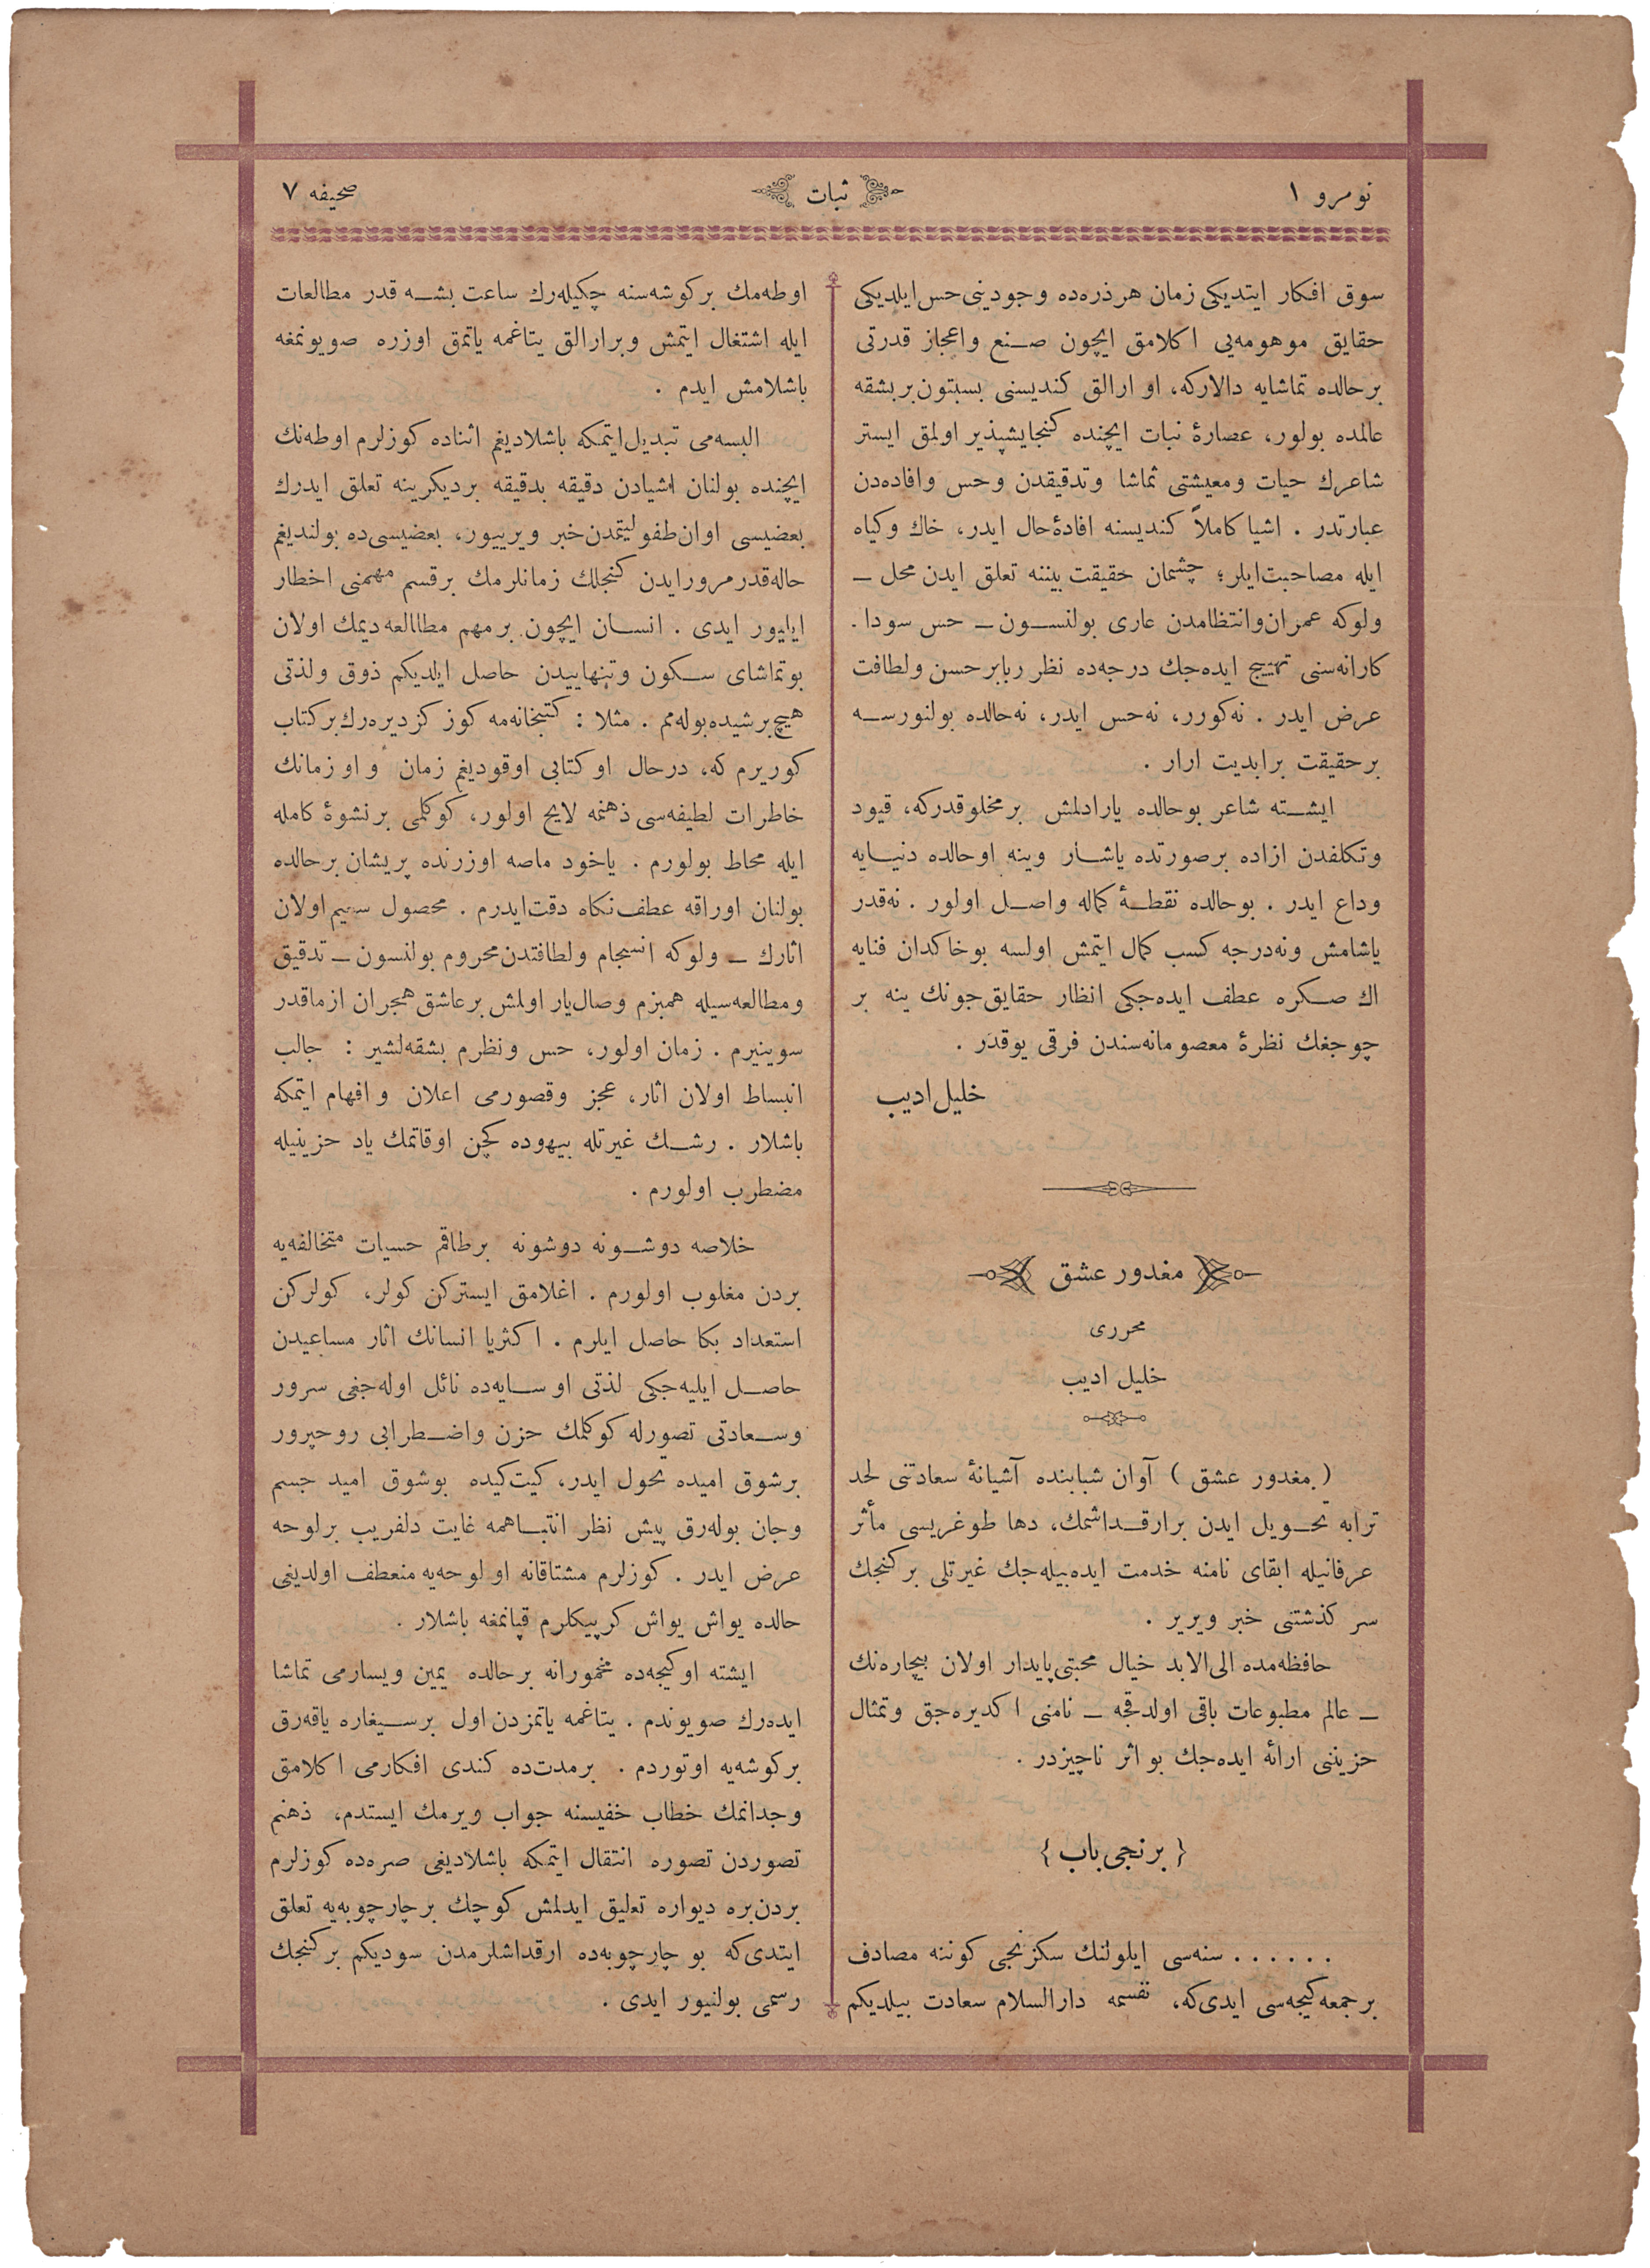 نومرو ١
ثبات
صحیفه ٧
سوق افكار ایتدیكی زمان هر ذره‌ده وجودینی حس ایلدیكی
حقایق موهومه‌یی اكلامق ایچون صنع واعجاز قدرتی
برحالده تماشایه دالاركه، او ارالق كندیسنی بسبتون بربشقه
عالمده بولور، عصارۀ نبات ایچنده كنجایشپذیر اولمق ایستر
شاعرك حیات ومعیشتی تماشا وتدقیقدن وحس وافاده‌دن
عبارتدر . اشیا كاملاً كندیسنه افادۀ حال ایدر، خاك وكیاه
ایله مصاحبت ایلر؛ چشمان حقیقت بیننه تعلق ایدن محل ـ
ولوكه عمران وانتظامدن عاری بولنسون ـ حس سودا .
كارانه‌سنی تهییج ایده‌جك درجه‌ده نظر ربابر حسن ولطافت
عرض ایدر . نه‌كورر، نه‌حس ایدر، نه‌حالده بولنورسه
برحقیقت برابدیت ارار .
ایشته شاعر بوحالده یارادلمش برمخلوقدركه، قیود
وتكلفدن ازاده برصورتده یاشار وینه اوحالده دنیایه
وداع ایدر . بوحالده نقطۀ كماله واصل اولور . نه‌قدر
یاشامش ونه‌درجه كسب كمال ایتمش اولسه بوخاكدان فنایه
اك صكره عطف ایده‌جكی انظار حقایق‌جونك ینه بر
چوجغك نظرۀ معصومانه‌سندن فرقی یوقدر .
خلیل ادیب
مغدور عشق
محرری
خلیل ادیب
( مغدور عشق ) آوان شبابنده آشیانۀ سعادتنی لحد
ترابه تحویل ایدن برارقداشمك، دها طوغریسی مأثر
عرفانیله ابقای نامنه خدمت ایده‌بیله‌جك غیرتلی بركنجك
سر كذشتنی خبر ویریر .
حافظه‌مده الی‌الابد خیال محبتی پایدار اولان بیچاره‌نك
ـ عالم مطبوعات باقی اولدقجه ـ نامنی اكدیره‌جق وتمثال
حزیننی ارائه ایده‌جك بو اثر ناچیزدر .
{ برنجی باب }
. . . . . . سنه‌سی ایلولنك سكزنجی كوننه مصادف
برجمعه كیجه‌سی ایدی‌كه، نفسمه دارالسلام سعادت بیلدیكم
اوطه‌مك بركوشه‌سنه چكیله‌رك ساعت بشه قدر مطالعات
ایله اشتغال ایتمش وبرارالق یتاغمه یاتمق اوزره صویونمغه
باشلامش ایدم .
البسه‌می تبدیل ایتمكه باشلادیغم اثناده كوزلرم اوطه‌نك
ایچنده بولنان اشیادن دقیقه بدقیقه بردیكرینه تعلق ایدرك
بعضیسی اوان طفولیتمدن خبر ویرییور، بعضیسی‌ده بولندیغم
حاله‌قدر مرور ایدن كنجلك زمانلرمك برقسم مهمنی اخطار
ایلیور ایدی . انسان ایچون برمهم مطاالعه دیمك اولان
بوتماشای سكون وتنهاییدن حاصل ایلدیكم ذوق ولذتی
هیچ برشیده بوله‌مم . مثلا : كتبخانه‌مه كوز كزدیره‌رك بركتاب
كوریرم كه، درحال اوكتابی اوقودیغم زمان واوزمانك
خاطرات لطیفه‌سی ذهنمه لایح اولور، كوكلمی برنشوۀ كامله
ایله محاط بولورم . یاخود ماصه اوزرنده پریشان برحالده
بولنان اوراقه عطف نكاه دقت ایدرم . محصول سعیم اولان
اثارك ـ ولوكه انسجام ولطافتدن محروم بولنسون ـ تدقیق
ومطالعه‌سیله همبزم وصال یار اولمش برعاشق هجران ازما قدر
سوینیرم . زمان اولور، حس ونظرم بشقه‌لشیر : جالب
انبساط اولان اثار، عجز وقصورمی اعلان وافهام ایتمكه
باشلار . رشك غیرتله بیهوده كچن اوقاتمك یاد حزینیله
مضطرب اولورم .
خلاصه دوشونه دوشونه برطاقم حسیات متخالفه‌یه
بردن مغلوب اولورم . اغلامق ایستركن كولر، كولركن
استعداد بكا حاصل ایلرم . اكثریا انسانك اثار مساعیدن
حاصل ایلیه‌جكی لذتی او سایه‌ده نائل اوله‌جغی سرور
وسعادتی تصورله كوكلمك حزن واضطرابی روحپرور
برشوق امیده تحول ایدر، كیت كیده بوشوق امید جسم
وجان بوله‌رق پیش نظر انتباهمه غایت دلفریب برلوحه
عرض ایدر . كوزلرم مشتاقانه او لوحه‌یه منعطف اولدیغی
حالده یواش یواش كرپیكلرم قپانمغه باشلار .
ایشته اوكیجه‌ده مخمورانه برحالده یمین ویسارمی تماشا
ایده‌رك صویوندم . یتاغمه یاتمزدن اول برسیغاره یاقه‌رق
بركوشه‌یه اوتوردم . برمدت‌ده كندی افكارمی اكلامق
وجدانمك خطاب خفیسنه جواب ویرمك ایستدم، ذهنم
تصوردن تصوره انتقال ایتمكه باشلادیغی صره‌ده كوزلرم
بردن‌بره دیواره تعلیق ایدلمش كوچك برچارچوبه‌یه تعلق
ایتدی‌كه بو چارچوبه‌ده ارقداشلرمدن سودیكم بركنجك
رسمی بولنیور ایدی .